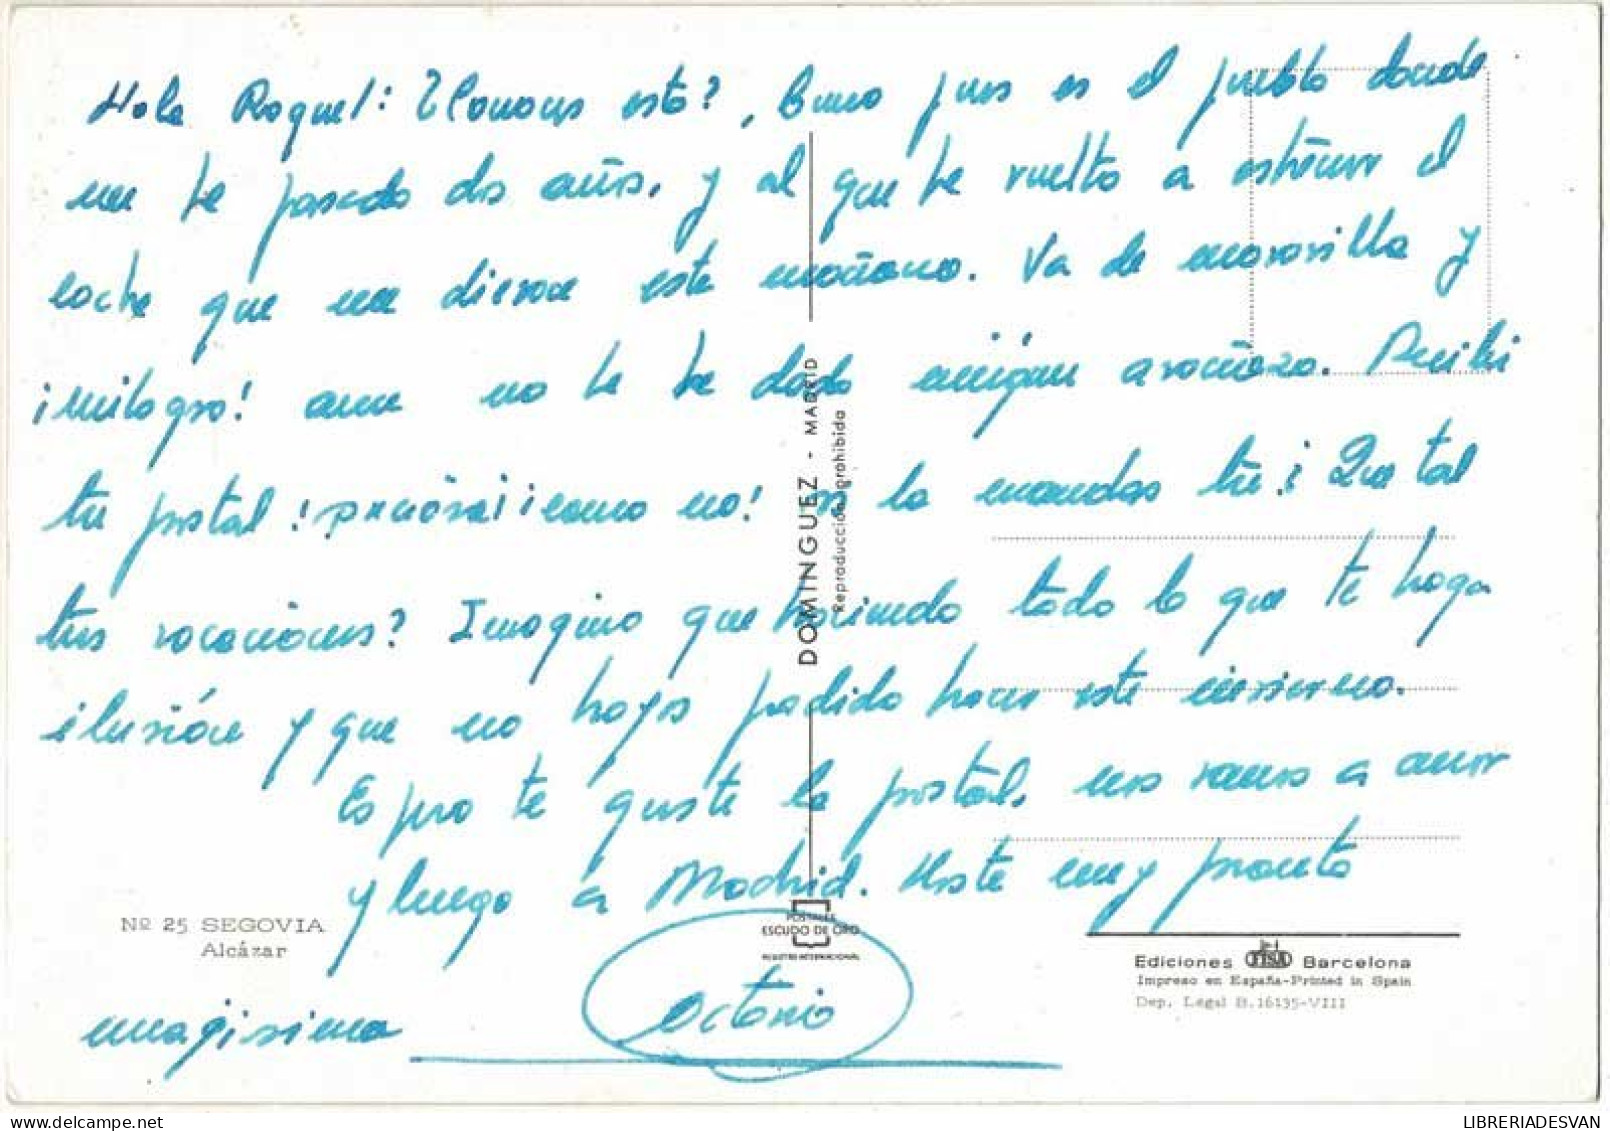 Hola Raquel: ? Conoces esto?, Bueno pues es el pueblo donde
me he pasado dos años, y al que he vuelto a estrenar el
coche que me dieron esta mañana. Va de maravilla y
¡milagro! aun no le he dado ningun arañazo. Recibi
tu postal ! preciosa! ¡como no! si la mandas tu. ¡ Que tal
tus vacaciones? Imagino que haciendo todo lo que te haga
ilusión y que no hayas podido hacer este invierno.
Espero te guste la postal, nos vamos a cenar
y luego a Madrid. Hasta muy pronto
magisima
Octavio
Nº 25 SEGOVIA
Alcázar
DOMINGUEZ - MADRID
Reproducción prohibida
POSTALES
ESCUDO DE ORO
REGISTRO INTERNACIONAL
Ediciones FISA Barcelona
Impreso en España-Printed in Spain
Dep. Legal B.16135-VIII
LIBRERIADESVAN